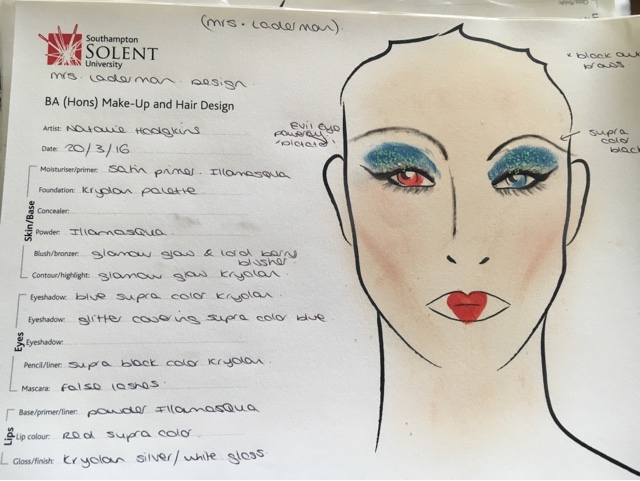 (mrs. Laderman).
Southampton
SOLENT
University
mrs. Laderman Design
BA (Hons) Make-Up and Hair Design
Artist: Natalie Hodgkins
Date: 20/3/16
Skin/Base
Moisturiser/primer: Satin primer. Illamasqua
Foundation: Kryolan palette
Concealer:
Powder: Illamasqua.
Blush/bronzer: glamour glow & lord berry
blusher
Contour/highlight: glamour glow Kryolan
Eyes
Eyeshadow: blue supra color Kryolan.
Eyeshadow: glitter covering supra color blue
Eyeshadow:
Pencil/liner: supra black color Kryolan
Mascara: false lashes.
Lips
Base/primer/liner: powder Illamasqua
Lip colour: Red supra color
Gloss/finish: Kryolan silver/white gloss
Evil eye
powerful
* black out
supra
color
black